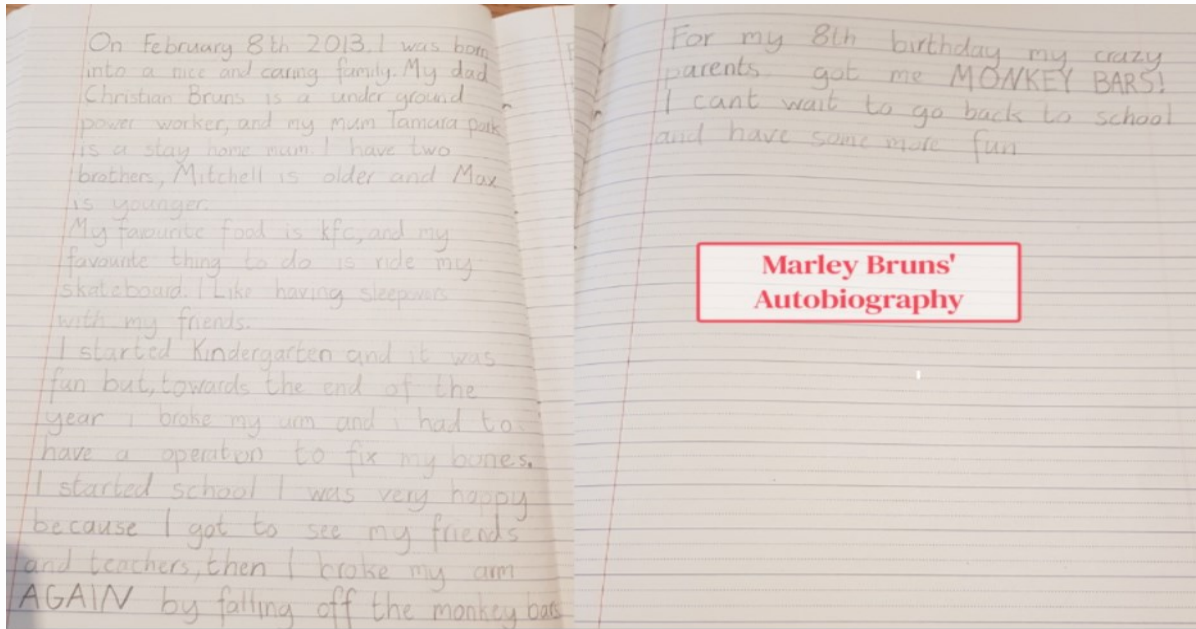 On February 8th 2013. I was born
into a nice and caring family. My dad
Christian Bruns is a under ground
power worker, and my mum Tamara park
is a stay home mum. I have two
brothers, Mitchell is older and Max
is younger.
My favourite food is kfc, and my
favourite thing to do is ride my
skateboard. I Like having sleepovers
with my friends.
I started Kindergarten and it was
fun but, towards the end of the
year i broke my arm and i had to
have a operation to fix my bones.
I started school I was very happy
because I got to see my friends
and teachers, then I broke my arm
AGAIN by falling off the monkey bars
For my 8th birthday my crazy
parents got me MONKEY BARS!
I cant wait to go back to school
and have some more fun
Marley Bruns'
Autobiography